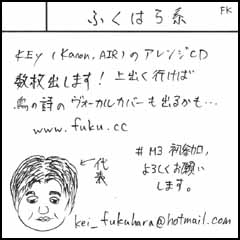 ふくはら系
FK
KEY (Kanon, AIR) のアレンジCD
数枚出します! 上出く行けば
鳥の詩のヴォーカルカバーも出るかも…
www.fuku.cc
# M3 初参加,
よろしくお願い
します。
←代表
kei_fukuhara@hotmail.com